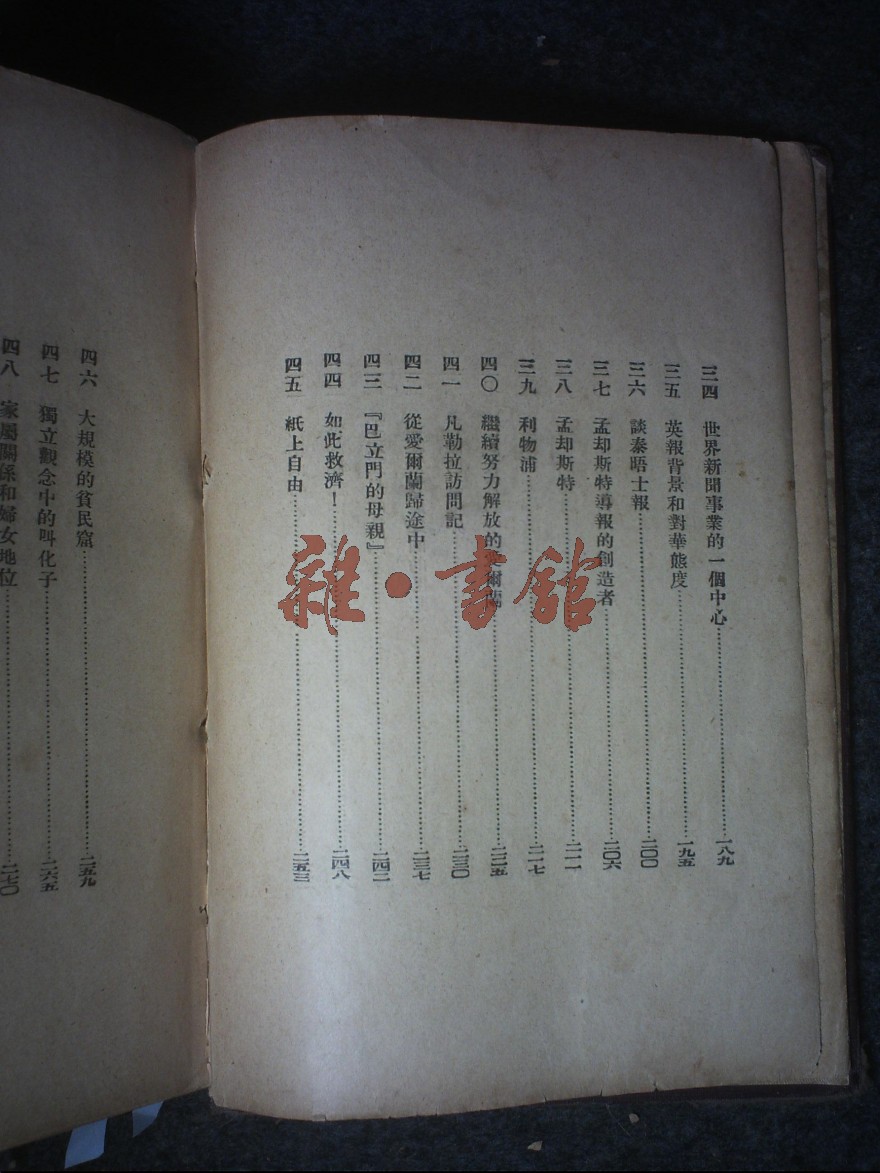 三四 世界新聞事業的一個中心……一八九
三五 英報背景和對華態度……一九五
三六 談泰晤士報……二〇〇
三七 孟却斯特導報的創造者……二〇六
三八 孟却斯特……二一一
三九 利物浦……二一七
四〇 繼續努力解放的愛爾蘭……二二五
四一 凡勒拉訪問記……二三〇
四二 從愛爾蘭歸途中……二三七
四三 『巴立門的母親』……二四二
四四 如此救濟！……二四八
四五 紙上自由……二五三
四六 大規模的貧民窟……二五九
四七 獨立觀念中的叫化子……二六五
四八 家屬關係和婦女地位……二七〇
雜·書館